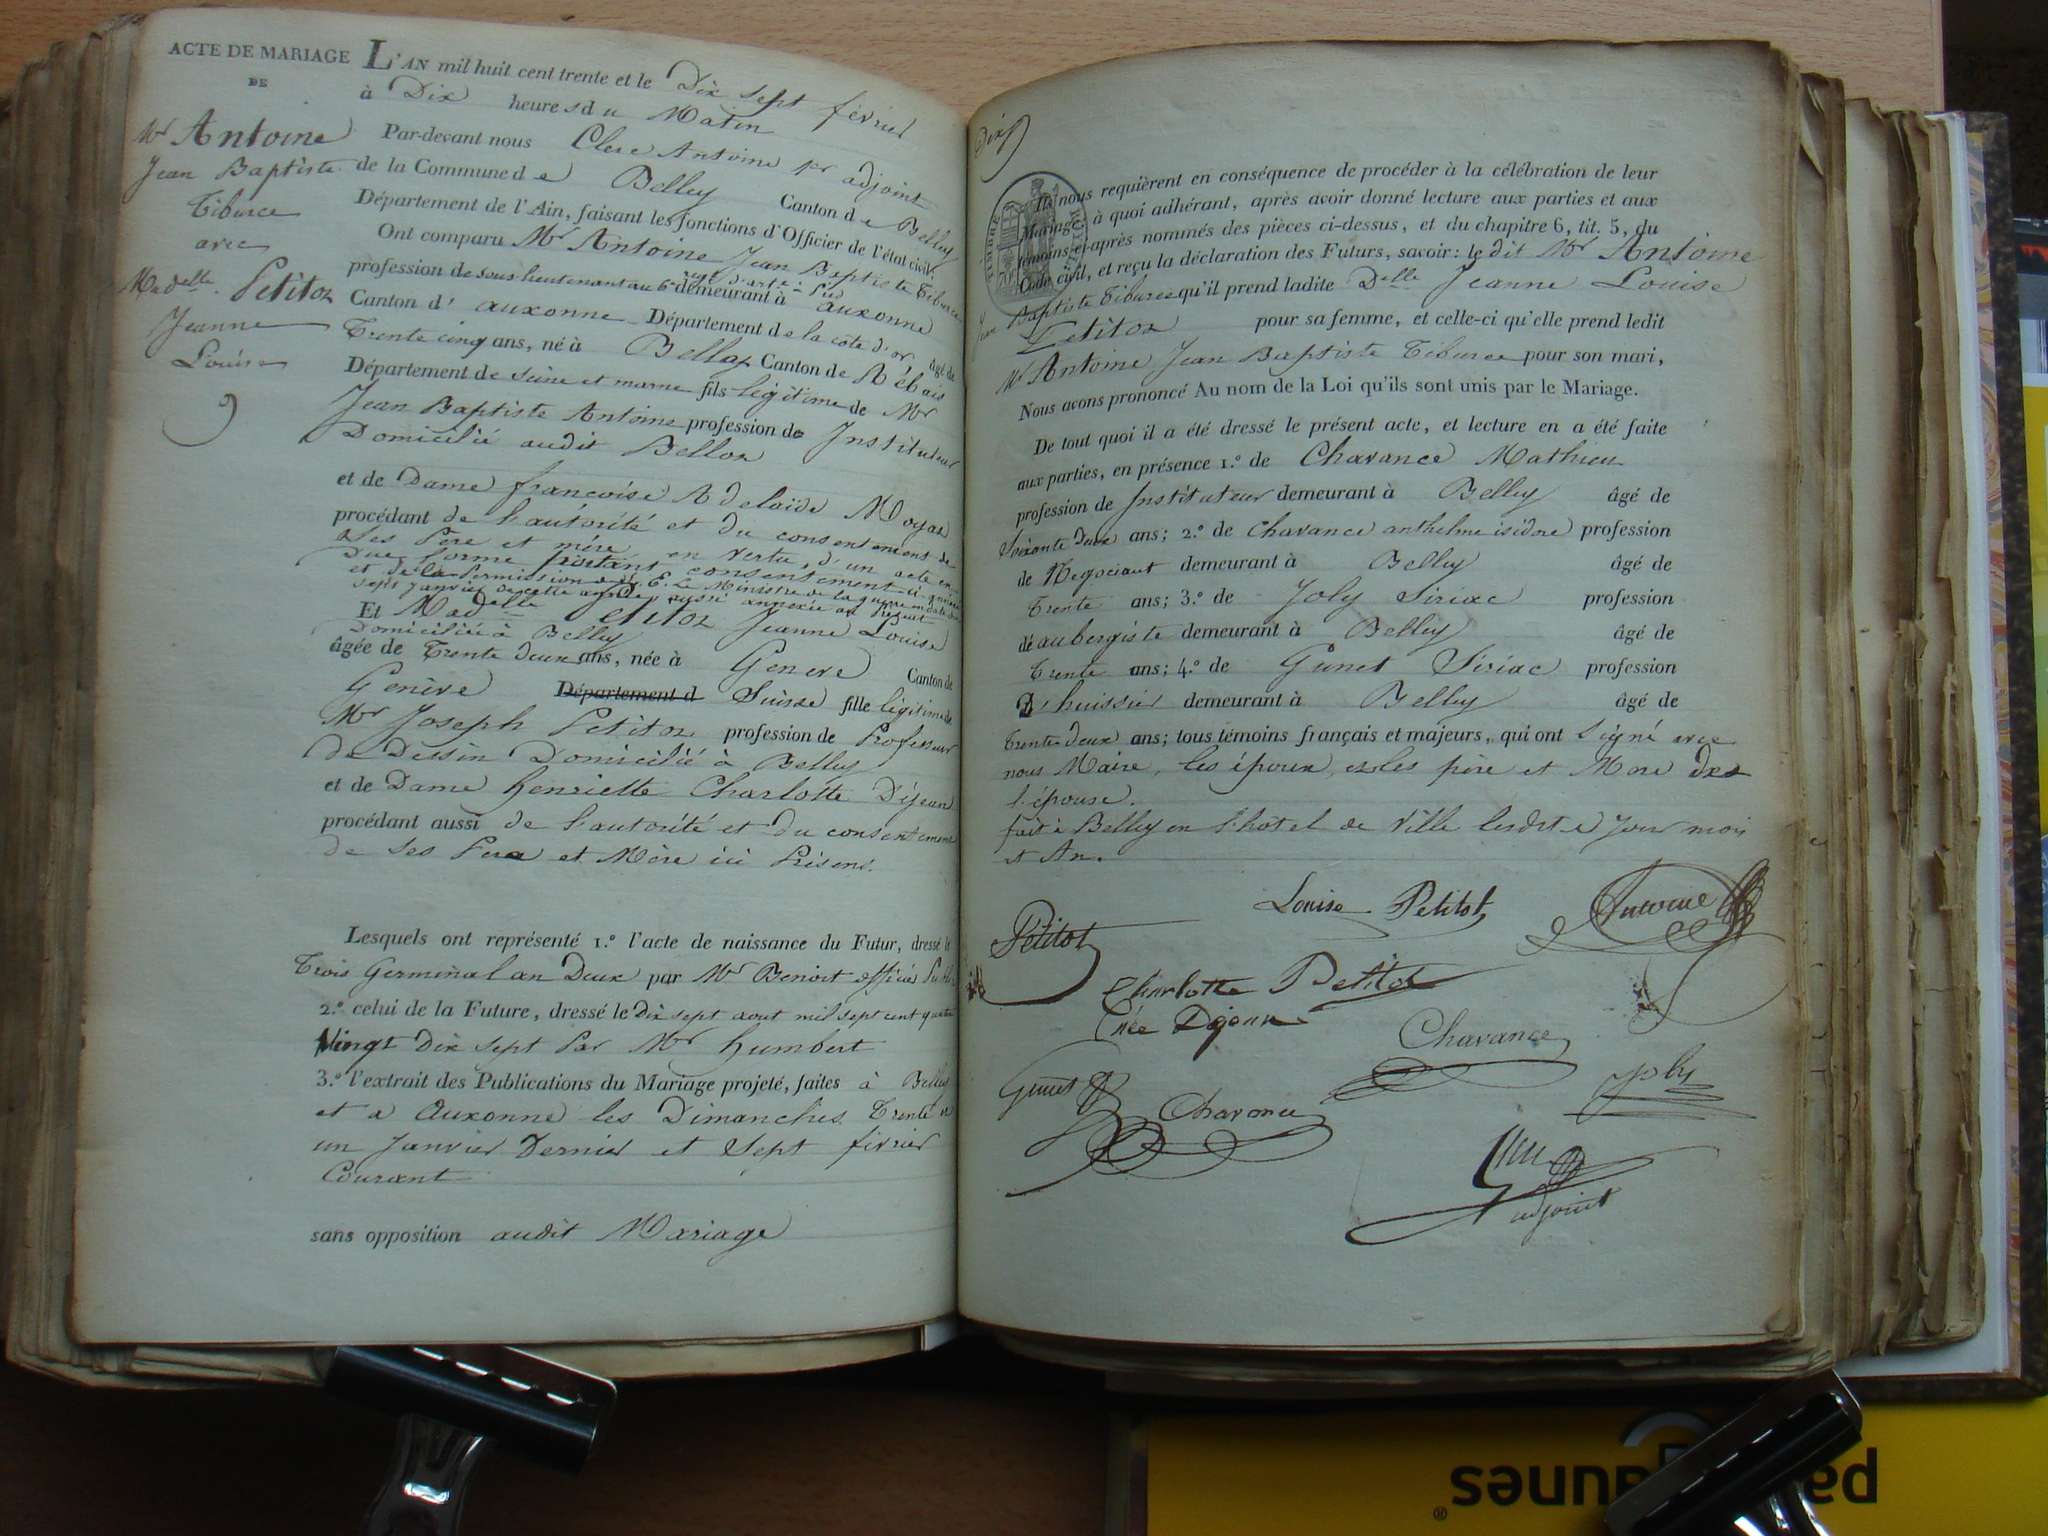 ACTE DE MARIAGE
DE
Mr Antoine
Jean Baptiste
Tiburce
avec
Madelle Petitot
Jeanne
Louise
L'AN mil huit cent trente et le Dix sept février
à Dix heures du Matin
Par-devant nous Clerc Antoine 1er adjoint
de la Commune de Belley Canton de Belley
Département de l'Ain, faisant les fonctions d'Officier de l'état civil.
Ont comparu Mr Antoine Jean Baptiste Tiburce
profession de sous lieutenant au 6e régt d'artie à pied demeurant à auxonne
Canton d' auxonne Département de la cote d'or âgé de
Trente cinq ans, né à Bellot Canton de Rébais
Département de Seine et marne fils légitime de Mr
Jean Baptiste Antoine profession de Instituteur
Domicilié audit Bellot
et de Dame françoise Adelaïde Moyat
procédant de l'autorité et du consentement de
ses Père et mère en vertu d'un acte en
due forme portant consentement
et de la Permission de S. E. Le Ministre de la guerre en date du
sept janvier de cette année aussi annexée au présent
Et Madelle Petitot Jeanne Louise
Domiciliée à Belley
âgée de Trente deux ans, née à Genève Canton de
Genève Département d Suisse fille légitime de
Mr Joseph Petitot profession de Professeur
de Dessin Domicilié à Belley
et de Dame henriette Charlotte Dejean
procédant aussi de l'autorité et du consentement
de ses Père et Mère ici Présens.
Lesquels ont représenté 1.º l'acte de naissance du Futur, dressé le
Trois Germinal an Deux par Mr Benoit officier Public
2.º celui de la Future, dressé le Dix sept aout mil sept cent quatre
Vingt Dix sept Par Mr humbert
3.º l'extrait des Publications du Mariage projeté, faites à Belley
et a Auxonne les Dimanches Trente et
un Janvier Dernier et Sept février
Courant
sans opposition audit Mariage
TIMBRE ROYAL
70
Ils nous requièrent en conséquence de procéder à la célébration de leur
Mariage à quoi adhérant, après avoir donné lecture aux parties et aux
témoins ci-après nommés des pièces ci-dessus, et du chapitre 6, tit. 5, du
Code civil, et reçu la déclaration des Futurs, savoir: le dit Mr Antoine
Jean Baptiste Tiburce qu'il prend ladite Delle Jeanne Louise
Petitot pour sa femme, et celle-ci qu'elle prend ledit
Mr Antoine Jean Baptiste Tiburce pour son mari,
Nous avons prononcé Au nom de la Loi qu'ils sont unis par le Mariage.
De tout quoi il a été dressé le présent acte, et lecture en a été faite
aux parties, en présence 1.º de Chavance Mathieu
profession de Instituteur demeurant à Belley âgé de
Soixante deux ans; 2.º de Chavance anthelme isidore profession
de Negociant demeurant à Belley âgé de
Trente ans; 3.º de Joly Siriac profession
d'aubergiste demeurant à Belley âgé de
Trente ans; 4.º de Gunet Siriac profession
D'huissier demeurant à Belley âgé de
Trente deux ans; tous témoins français et majeurs, qui ont signé avec
nous Maire, les époux, et les père et Mère de
l'épouse.
fait à Belley en l'hotel de Ville lesdits Jour mois
et An.
Louise Petitot
Antoine
Petitot
Charlotte Petitot
née Dejean
Chavance
Gunet
Chavance
Joly
adjoint
pa aunes®